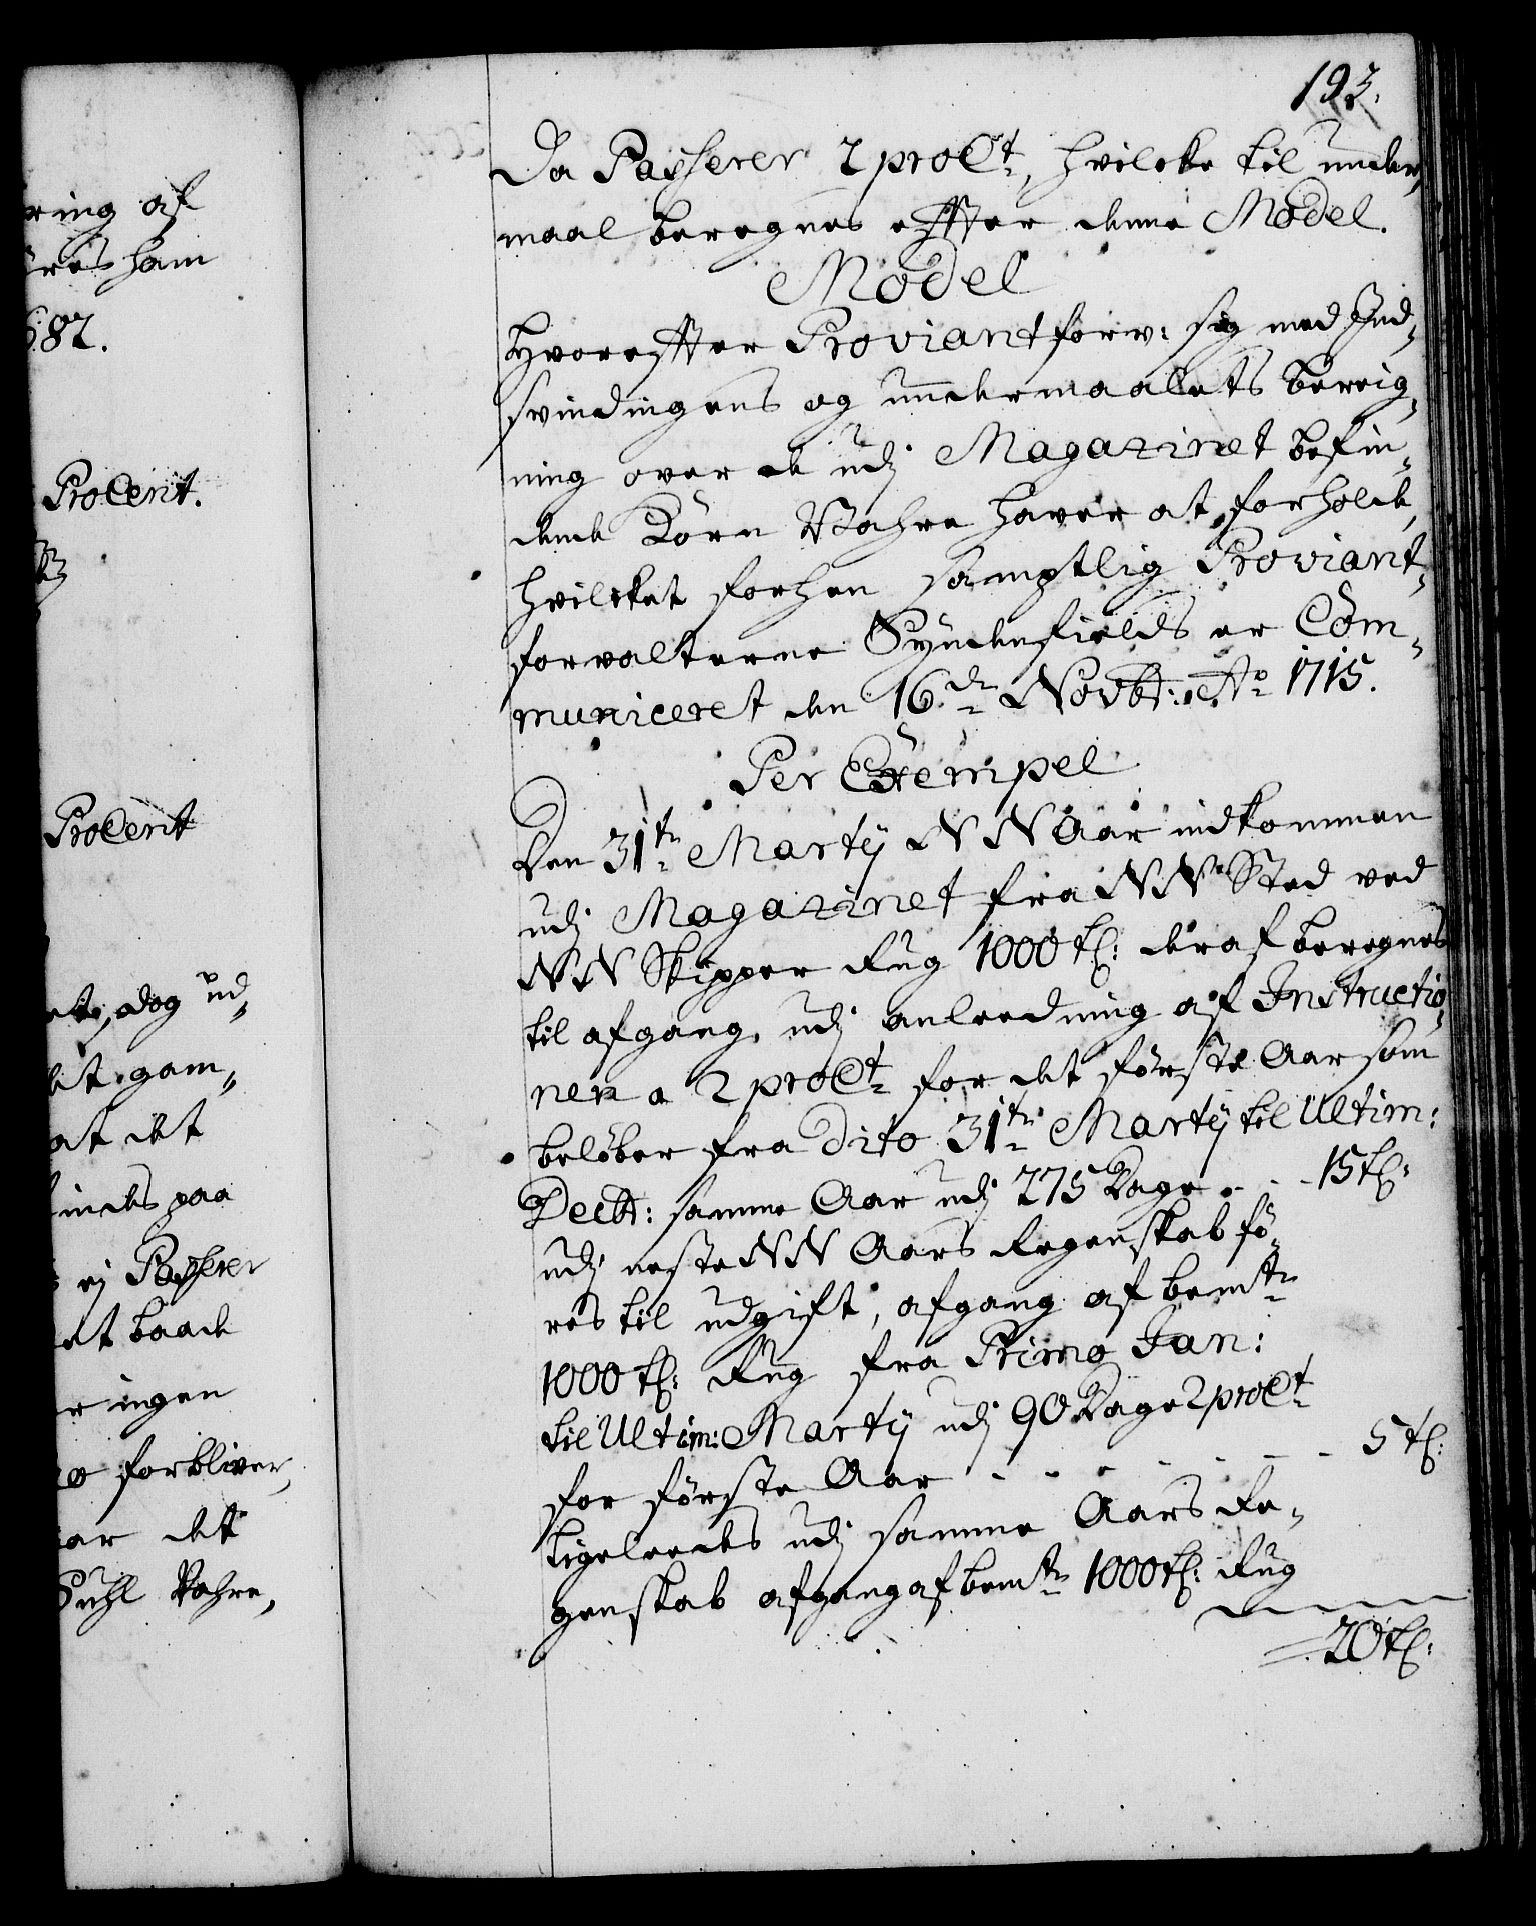 ring af
res ham
682.
ProCent.
ProCent
dog ud„
gam„
at det
findes paa
ej Passerer
et baade
er ingen
forbliver,
det
Vahre,
193.
Da Passerer 2 proCt, hvilcke til under„
maal beregnes effter denne Model.
Model
Hvoreffter Proviantforv: sig med Ind„
svindingens og undermaalets bereig„
ning over de udj Magazinet befin„
dende Korn Vahre haver at forholde,
hvilcket forhen samptlig Proviant„
forvalterne Syndenfields er Com„
municeret den 16de Novbr: Ao 1715.
Per Exempel
Den 31te Martij NN Aar indkommen
udj Magazinet fra NN Sted ved
NN Skipper Rug 1000 tr: deraf beregnes
til afgang, udj anleedning af Instructio„
nen a 2 proCt for det første Aar som
beløber fra Dito 31te Martij til Ultim:
Decbr: samme Aar udj 275 Dage . . . 15 tr:
udj neste NN Aars Regenskab fø„
res til udgift, afgang af bemte
1000 tr: Rug fra Primo Jan:
til Ultim: Martij udj 90 Dage 2 proCt
for første Aar - - - - - - - 5 tr:
Ligeleedes udj samme Aars Re„
genskab afgang af bemte 1000 tr: Rug
20 tr: